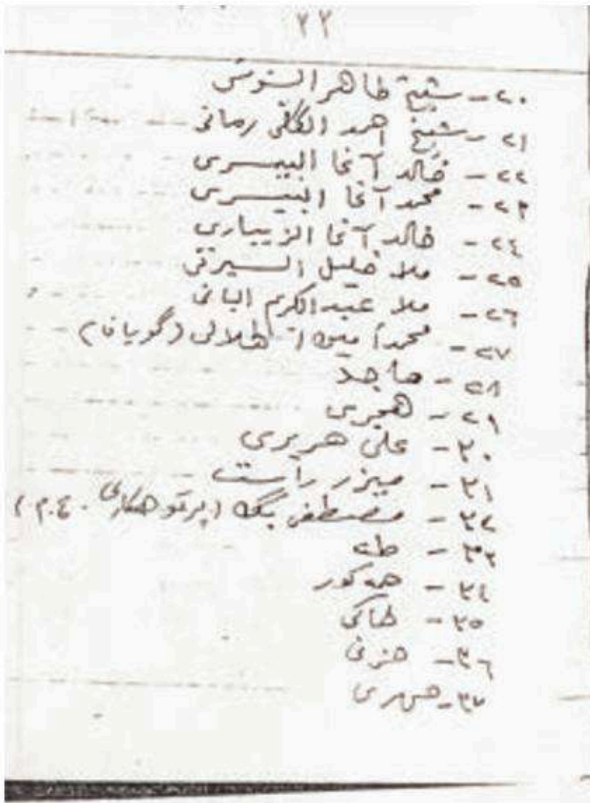 ٢٢
٢٠- شيخ طاهر الشوشى
٢١- شيخ احمد الكلفى رمانى
٢٢- خالد آغا البيسرى
٢٣- محمد آغا البيسرى
٢٤- خالد آغا الزيبارى
٢٥- ملا خليل السيرتى
٢٦- ملا عبدالكريم البانى
٢٧- محمد امين هلالى (گويانى)
٢٨- ماجد
٢٩- هجرى
٣٠- على هريرى
٣١- ميزر راست
٣٢- مصطفى بگ (پرتو هكارى . ع . م)
٣٣- طه
٣٤- هه كور
٣٥- خاكى
٣٦- حزنى
٣٧-